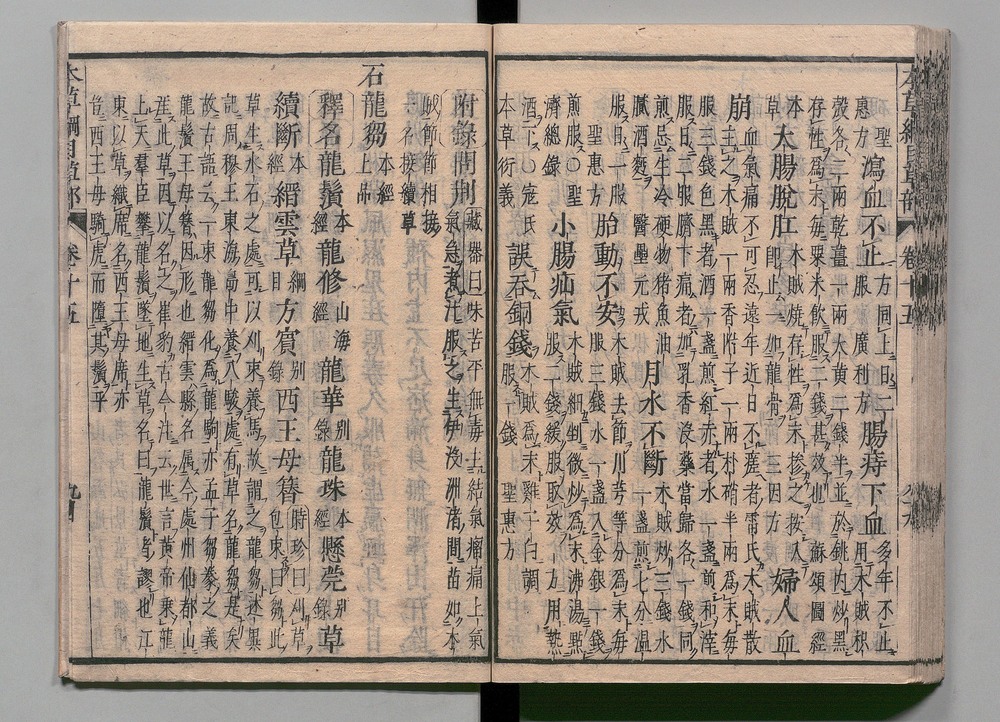 本草綱目草部 卷十五
聖惠方 瀉血不止 方同上日二服 廣利方 腸痔下血 多年不止用木賊枳
殼各二兩乾薑一兩大黃二錢半並於銚內炒黑存性為末每粟米飲服二錢甚效也 蘇頌圖經
本草 大腸脫肛 木賊燒存性為末摻之按入即止一加龍骨 三因方 婦人血
崩 血氣痛不可忍遠年近日不瘥者雷氏木賊散主之木賊一兩香附子一兩朴硝半兩為末每
服三錢色黑者酒一盞煎紅赤者水一盞煎和滓服日二服臍下痛者加乳香沒藥當歸各一錢同
煎忌生冷硬物猪魚油膩酒麪 醫壘元戎 月水不斷 木賊炒三錢水一盞煎七分溫
服日一服 聖惠方 胎動不安 木賊去節川芎等分為末每服三錢水一盞入金銀一錢
煎服○聖濟總錄 小腸疝氣 木賊細剉微炒為末沸湯點服二錢緩服取效一方用熱
酒下○寇氏本草衍義 誤吞銅錢 木賊為末雞子白調服一錢 聖惠方
附錄問荊 藏器曰味苦平無毒主結氣瘤痛上氣氣急煮汁服之生伊洛洲渚間苗如木
賊節節相接一名接續草
石龍芻 本經上品
釋名龍鬚 本經 龍修 山海經 龍華 別錄 龍珠 本經 懸莞 別錄 草
續斷 本經 縉雲草 綱目 方賓 別錄 西王母簪 時珍曰刈草包束曰芻此
草生水石之處可以刈束養馬故謂之龍芻述異記周穆王東海島中養八駿處有草名龍芻是矣
故古語云一束龍芻化為龍駒亦孟子芻豢之義龍鬚王母簪因形也縉雲縣名屬今處州仙都山
產此草因以名之崔豹古今注云世言黃帝乘龍上天羣臣攀龍鬚墜地生草名曰龍鬚者謬也江
東以草織席名西王母席亦豈西王母騎虎而墮其鬚乎
本草綱目草部 卷十五